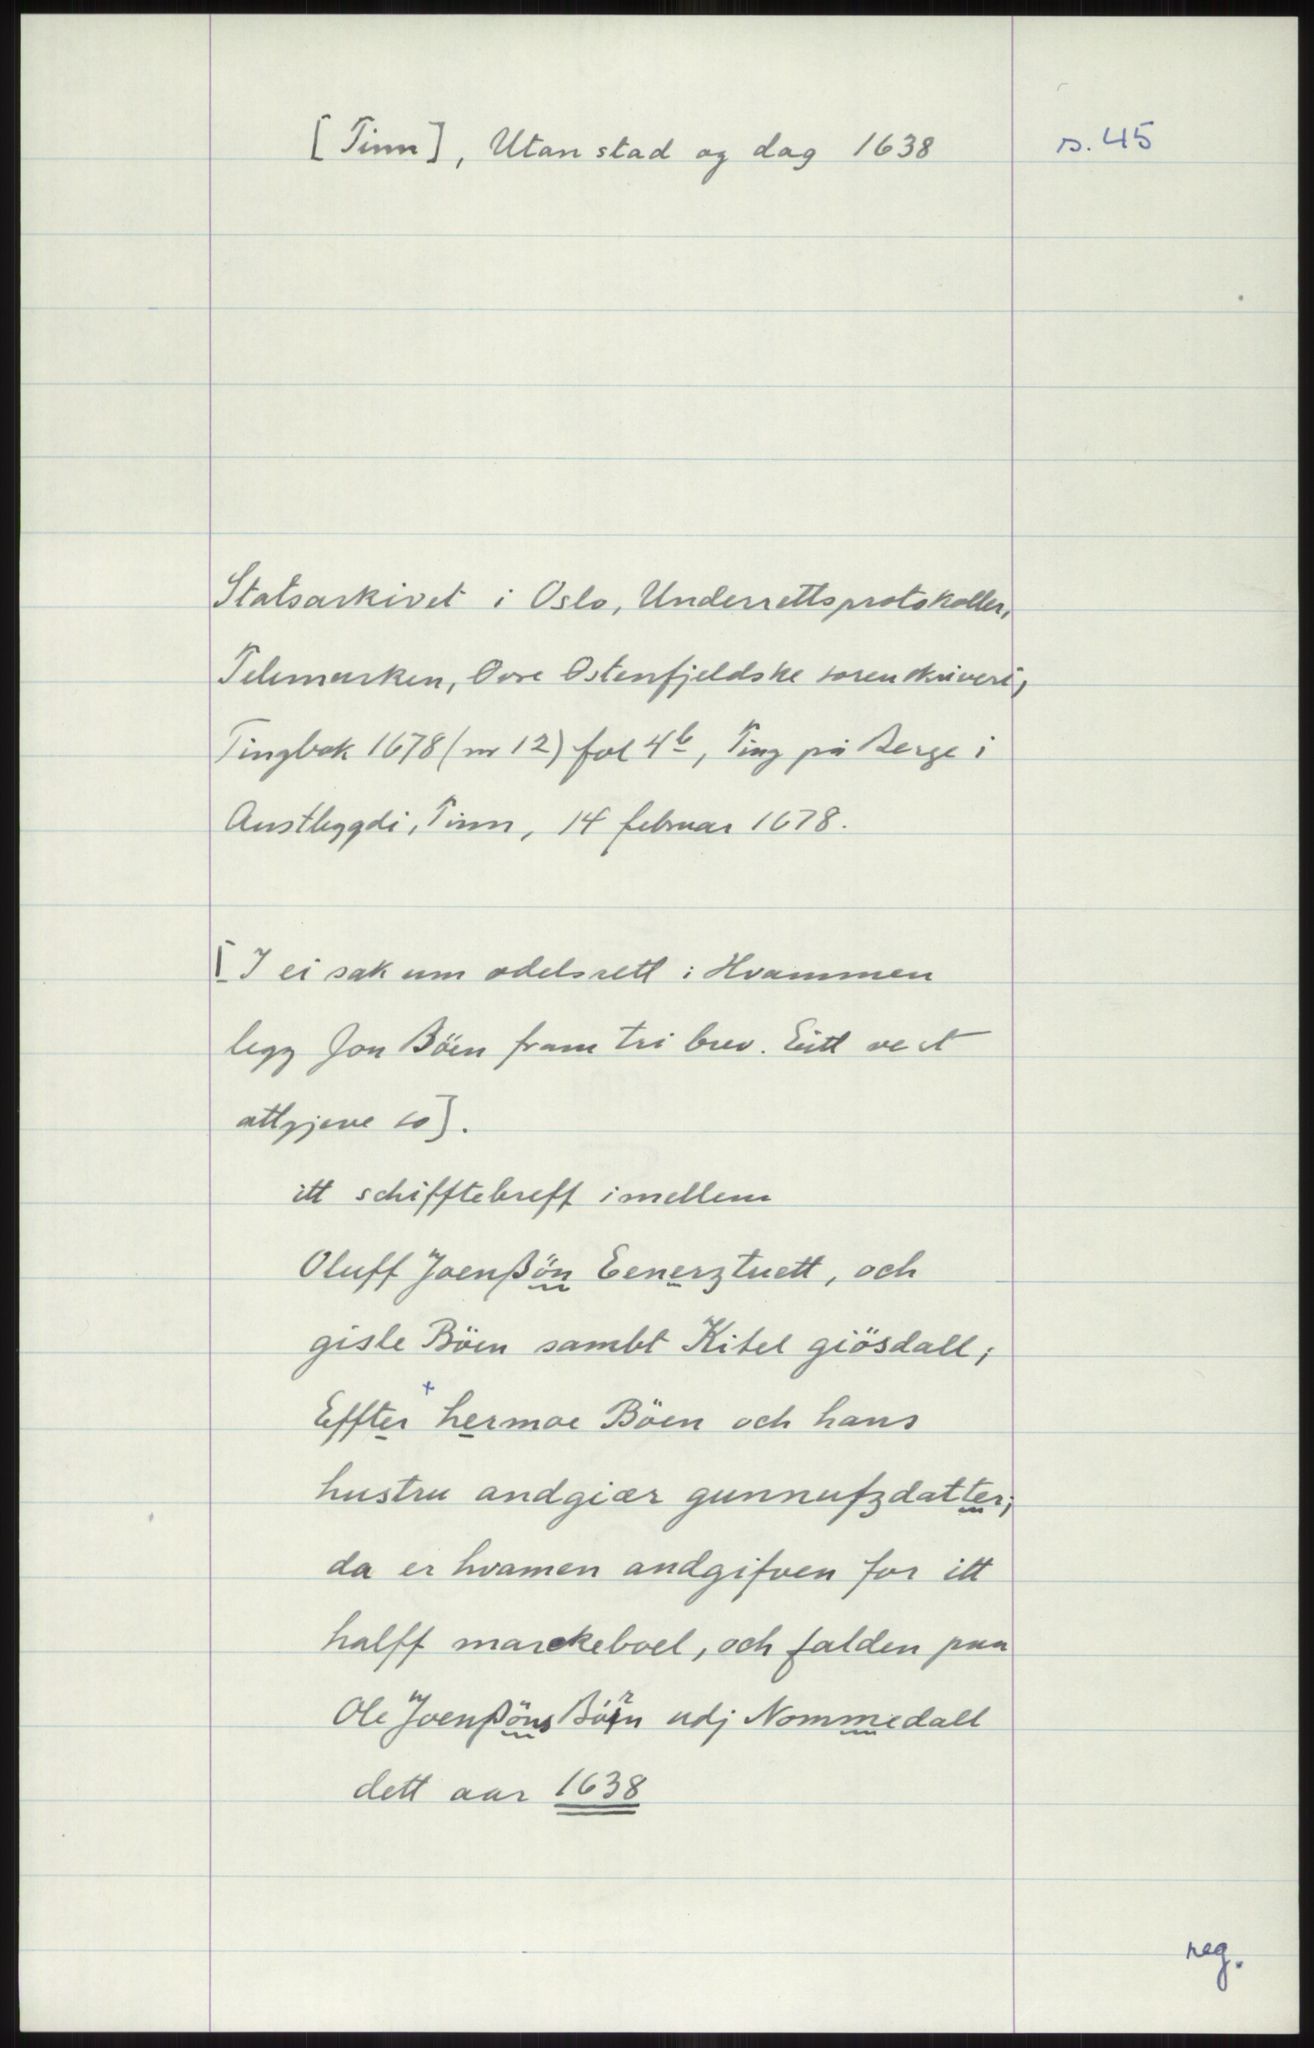 [Tinn], Utan stad og dag 1638
s. 45
Statsarkivet i Oslo, Underrettsprotokoller,
Telemarken, Øvre Østenfjeldske sorenskriveri,
Tingbok 1678 (nr 12) fol 4b, Ting på Berge i
Austbygdi, Tinn, 14 februar 1678.
[I ei sak um odelsrett i Hvammen
legg Jon Böen fram tri brev. Eitt vert
attgjeve so].
itt schifftebreff imellem
Oluff Joenßön Eenerztuett, och
gisle Böen sambt Kitel giösdall;
Effter + hermoe Böen och hans
hustru andgiær gunnufzdatter;
da er hvamen andgifven for itt
halff marckeboel, och falden paa
Ole Joenßöns udj Nommedall
dett aar 1638
reg.